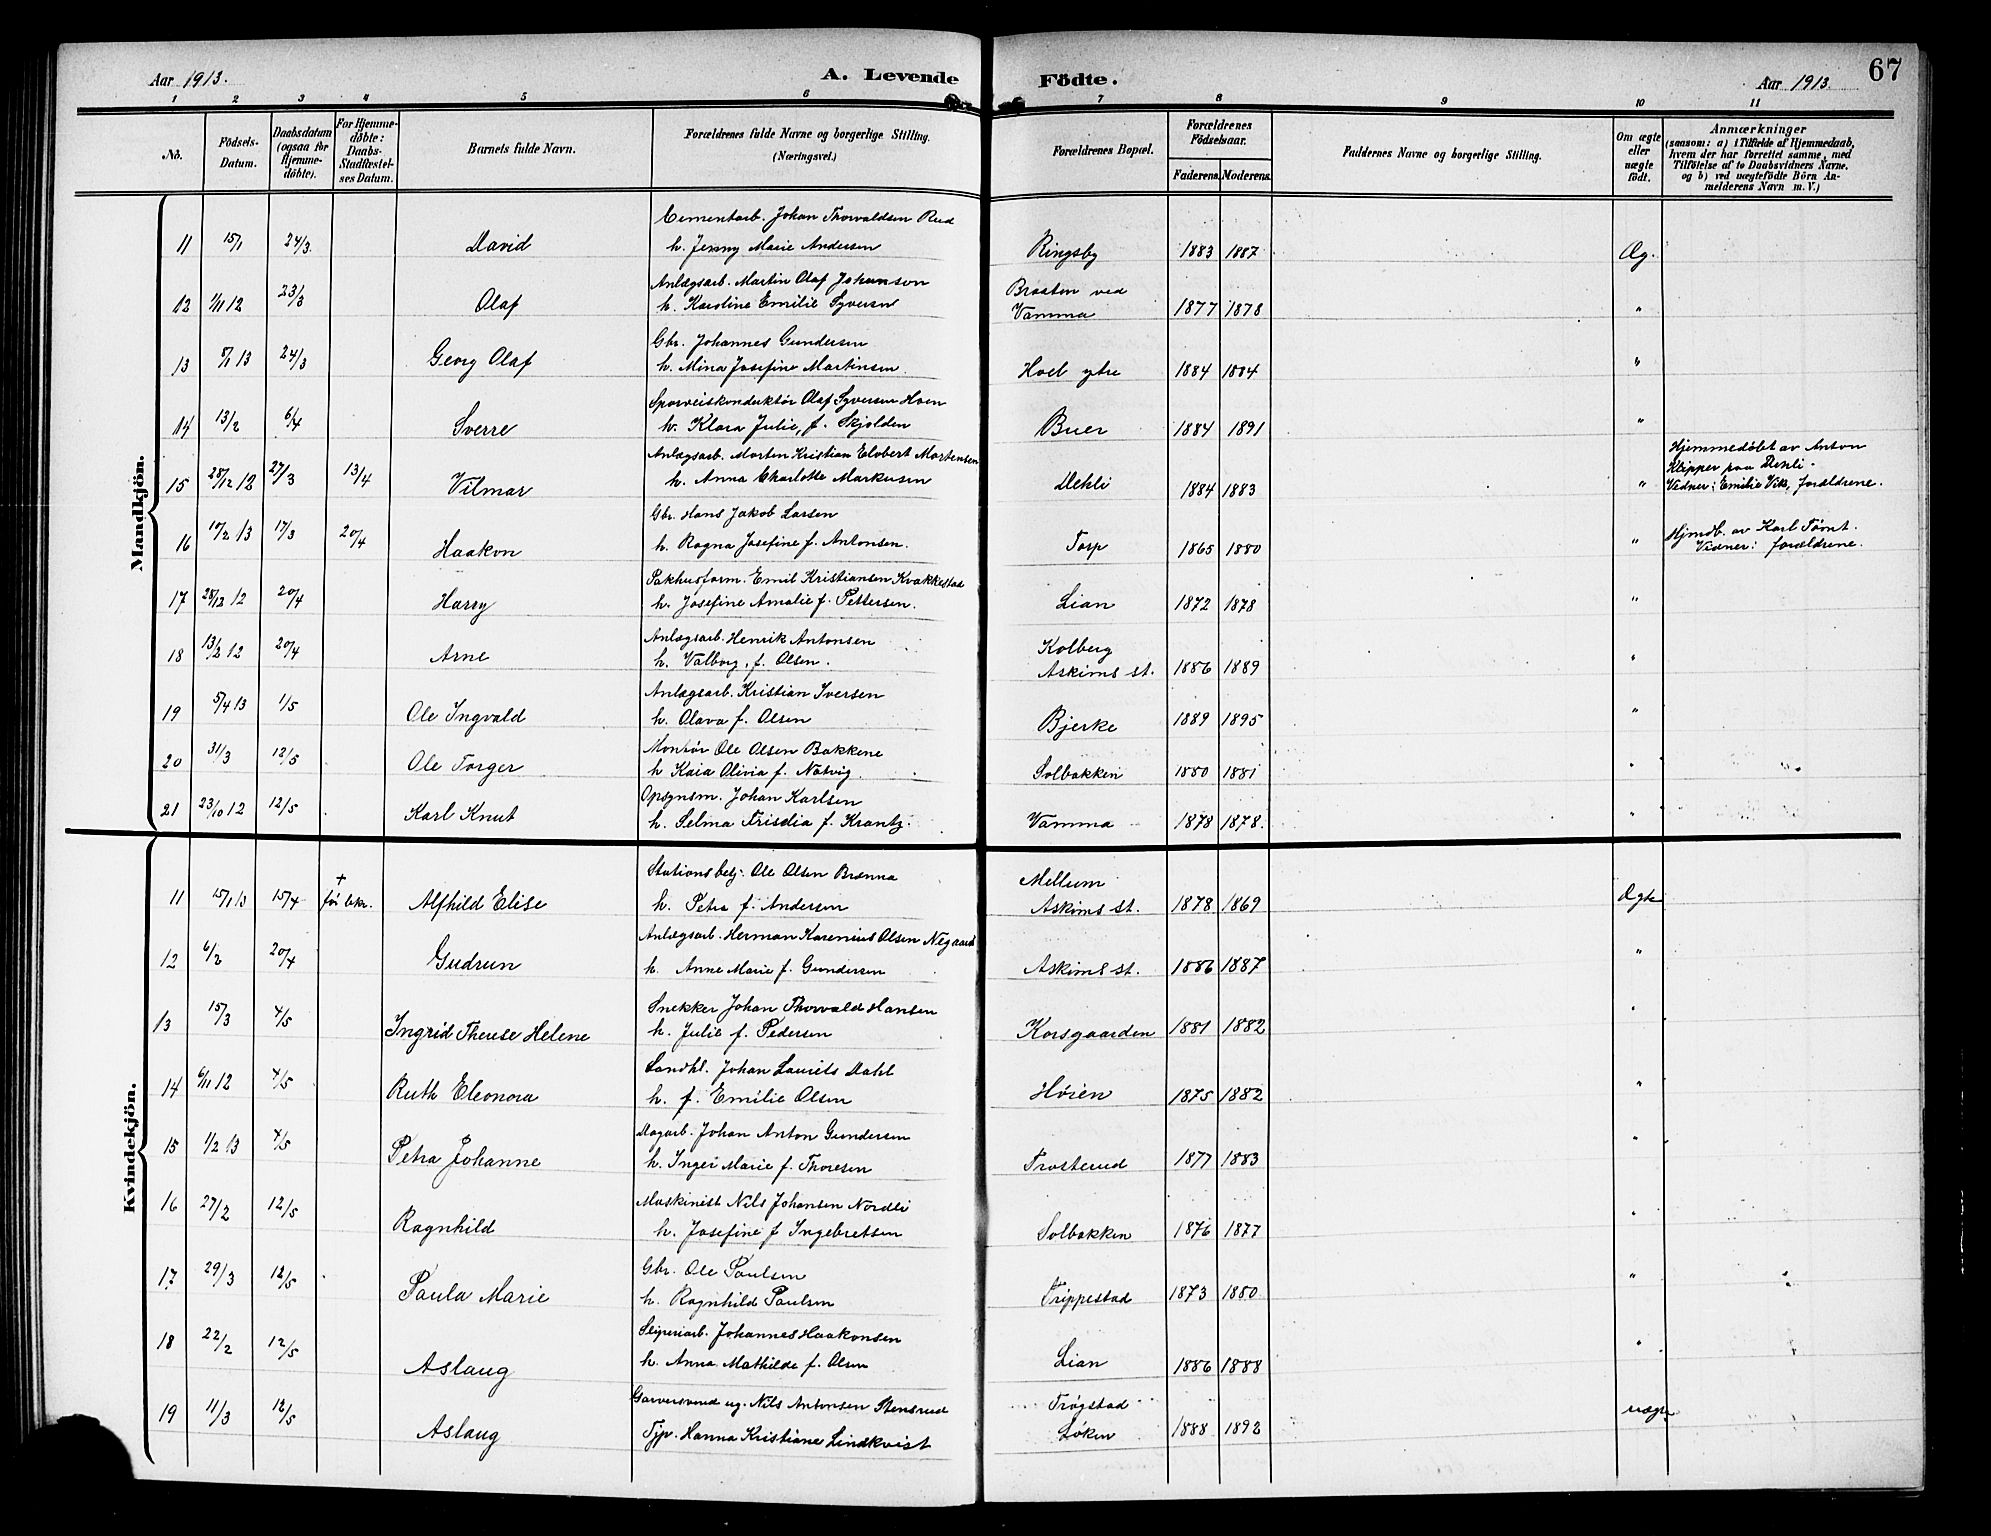 Aar 1913. A. Levende Födte. Aar 1913. 67
1 2 3 4 5 6 7 8 9 10 11
No. Födsels-Datum. Daabsdatum (ogsaa for Hjemmedöbte). For Hjemmedöbte: Daabs-Stadfæstelses Datum. Barnets fulde Navn. Forældrenes fulde Navne og borgerlige Stilling. (Næringsvei.) Forældrenes Bopæl. Forældrenes Födselsaar. Faderens. Moderens. Faddernes Navne og borgerlige Stilling. Om ægte eller uægte født. Anmærkninger (saasom: a) i Tilfælde af Hjemmedaab, hvem der har forrettet samme, med Tilföielse af to Daabsvidners Navne. og b) ved uægtefödte Börn Anmelderens Navn m. V.)
Mandkjön.
Cementarb. Johan Thorvaldsen Rud
11 15/1 24/3. David h. Jenny Marie Andersen Ringsby 1883 1887 Æg.
Anlægsarb. Martin Olaf Johanson Braaten ved
12 1/11 12 23/3 Olaf h. Karoline Emilie Syversen Vamma 1877 1878 "
Gbr. Johannes Gundersen
13 5/1 13 24/3 Georg Olaf h. Mina Josefine Martinsen Hoel ytre 1884 1884 "
Sporveiskonduktør Olaf Syversen Hoen
14 13/2 6/4 Sverre h. Klara Julie, f. Skjolden Buer 1884 1891 "
Anlægsarb. Morten Kristian Elobert Mortensen Hjemmedøbt av Anton
Klipper paa Dehli.
15 28/12 12 27/3 13/4 Vilmar h. Anna Charlotte Markusen Dehli 1884 1883 " Vidner: Emilie Vik, forældrene.
Gbr. Hans Jakob Larsen Hjmdb. av Karl Tømt.
16 10/2 13 17/3 20/4 Haakon h. Ragna Josefine f. Antonsen. Torp 1865 1880 " Vidner: forældrene.
Pakhusform. Emil Kristiansen Kvakkestad
17 28/12 12 20/4 Harry h. Josefine Amalie f. Pettersen. Lian 1872 1878 "
Anlægsarb. Henrik Antonsen Kolberg
18 13/2 12 20/4 Arne h. Valborg, f. Olsen. Askims st. 1886 1889 "
Anlægsarb. Kristian Iversen
19 5/4 13 1/5 Ole Ingvald h. Olava f. Olsen Bjerke 1889 1895 "
Montør Ole Olsen Bakkene
20 31/3 12/5 Ole Torger h Kaia Olivia f. Natvig. Solbakken 1880 1881 "
Opsynsm. Johan Karlsen
21 23/10 12 12/5 Karl Knut h. Selma f. Krantz. Vamma 1878 1878. "
Kvindekjön.
Stationsbetj. Ole Olsen Brænna Mellum
11 15/1 13 15/4 + før bekr. Alfhild Elise h. Petra f. Andersen Askims st. 1878 1869 Ægte
Anlægsarb. Herman Karenius Olsen Negaard
12 6/2 20/4 Gudrun h. Anne Marie f. Gundersen Askims st. 1886 1887 "
Snekker Johan Thorvald Hansen
13 15/3 4/5 Ingrid Therese Helene h. Julie f. Pedersen Korsgaarden 1881 1882 "
Landhl. Johan Laurits Dahl
14 6/11 12 4/5 Ruth Eleonora h. f. Emilie Olsen Høien 1875 1882 "
Johan Anton Gundersen
15 1/2 13 4/5 Petra Johanne h. Inger Marie f. Thoresen Frosterud 1877 1883 "
Maskinist Nils Johansen Nordli
16 27/2 12/5 Ragnhild h. Josefine f Ingebretsen Solbakken 1876 1877 "
Gbr. Ole Paulsen
17 29/3 12/5 Paula Marie h. Ragnhild Paulsen Trippestad 1873 1880 "
Sliperiarb. Johannes Haakonsen
18 22/2 12/5 Aslaug h. Anna Mathilde f. Olsen Lian 1886 1888 "
Garversvend ug. Nils Antonsen Stensrud Trøgstad uægte
19 11/3 12/5 Aslaug Tjp. Hanna Kristiane Lindkvist Løken 1888 1892